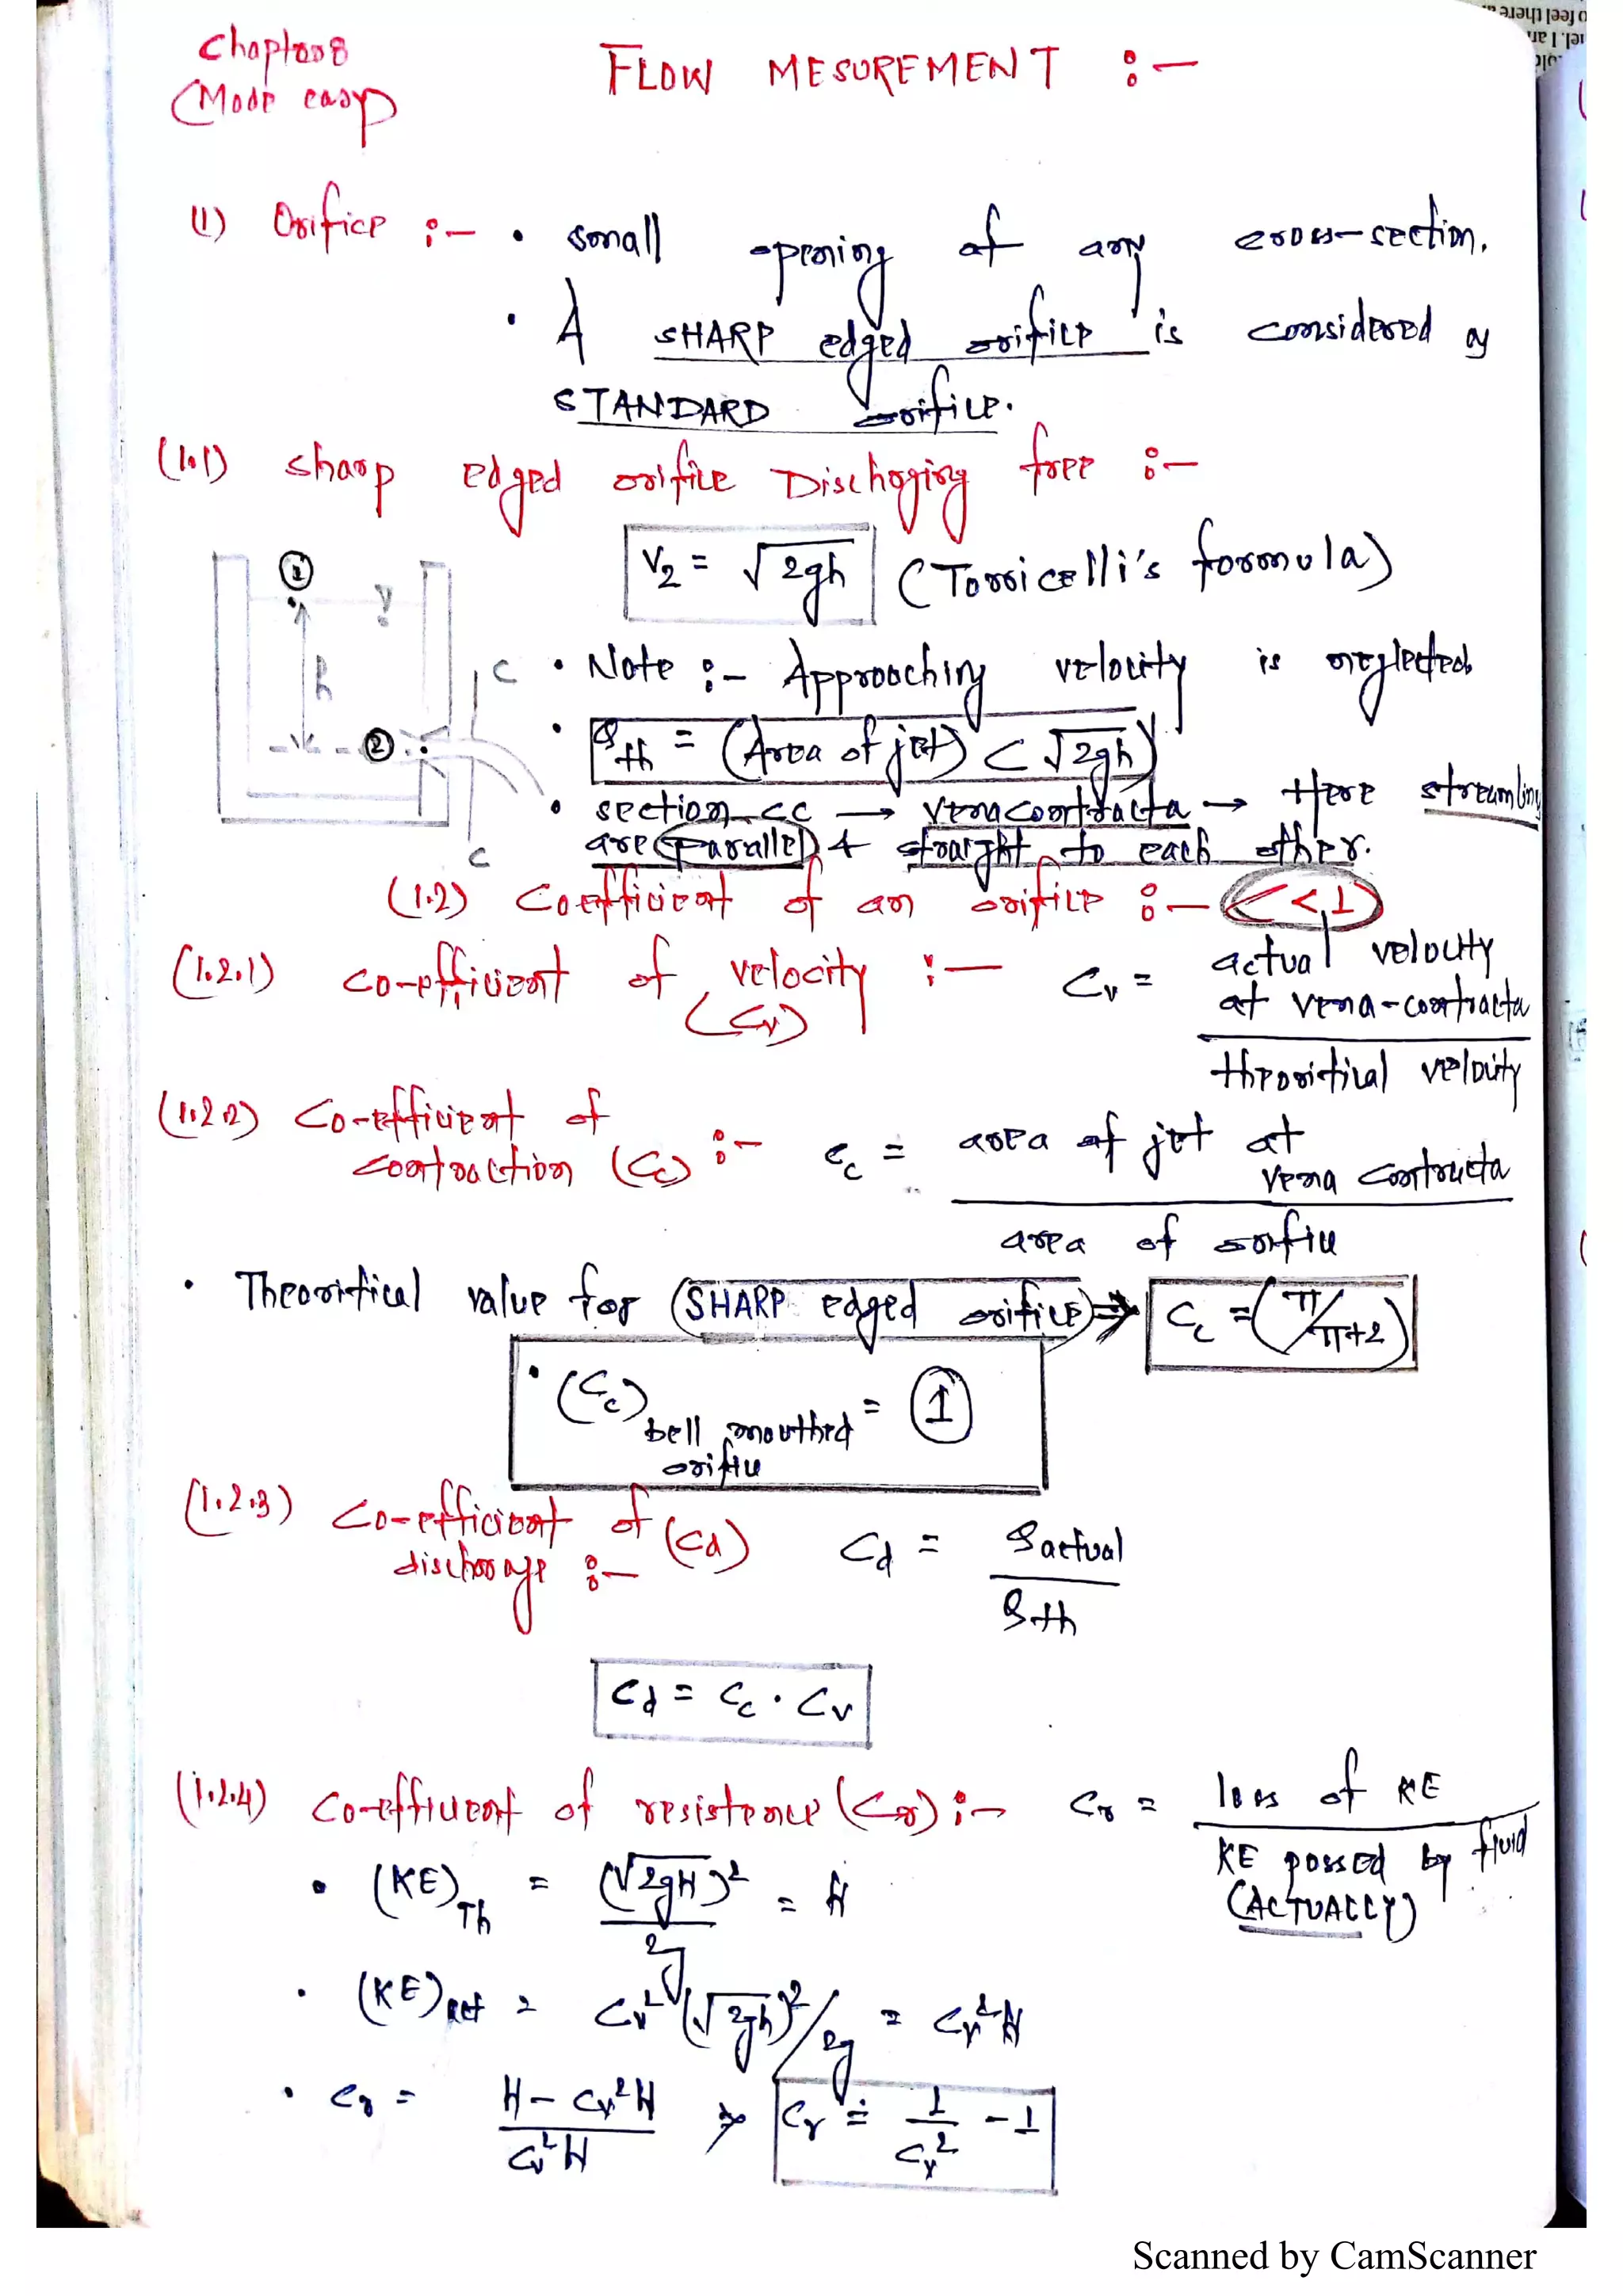 Chapter 8
(Made easy)
FLOW MESUREMENT :-
(1) Orifice :- • small opening of any cross-section.
• A SHARP edged orifice is considered as
STANDARD orifice.
(1.1) sharp edged orifice Discharging free :-
V2 = √2gh (Torricelli's formula)
1
h
2
C
C
• Note :- Approaching velocity is neglected
• Qth = (Area of jet) (√2gh)
• section cc → vena contracta → Here streamlines
are parallel & straight to each other.
(1.2) Coefficient of an orifice :- (<1)
(1.2.1) co-efficient of velocity :-
(Cv)
Cv = actual velocity
at vena-contracta
theoritical velocity
(1.2.2) Co-efficient of
contraction (Cc) :-
Cc = area of jet at
vena contracta
area of orifice
• Theoritical value for (SHARP edged orifice) ⇒ Cc = (π/π+2)
• (Cc) bell mouthed orifice = 1
(1.2.3) Co-efficient of (Cd)
discharge :-
Cd = Qactual
Qth
Cd = Cc . Cv
(1.2.4) Co-efficient of resistence (Cr) :- Cr = loss of KE
KE possed by fluid
(ACTUALLY)
• (KE)Th = (√2gH)² / 2g = H
• (KE)Act = Cv²(√2gh)²/2g = Cv²H
• Cr = H - Cv²H / Cv²H ⇒ Cr = 1/Cv² - 1
Scanned by CamScanner